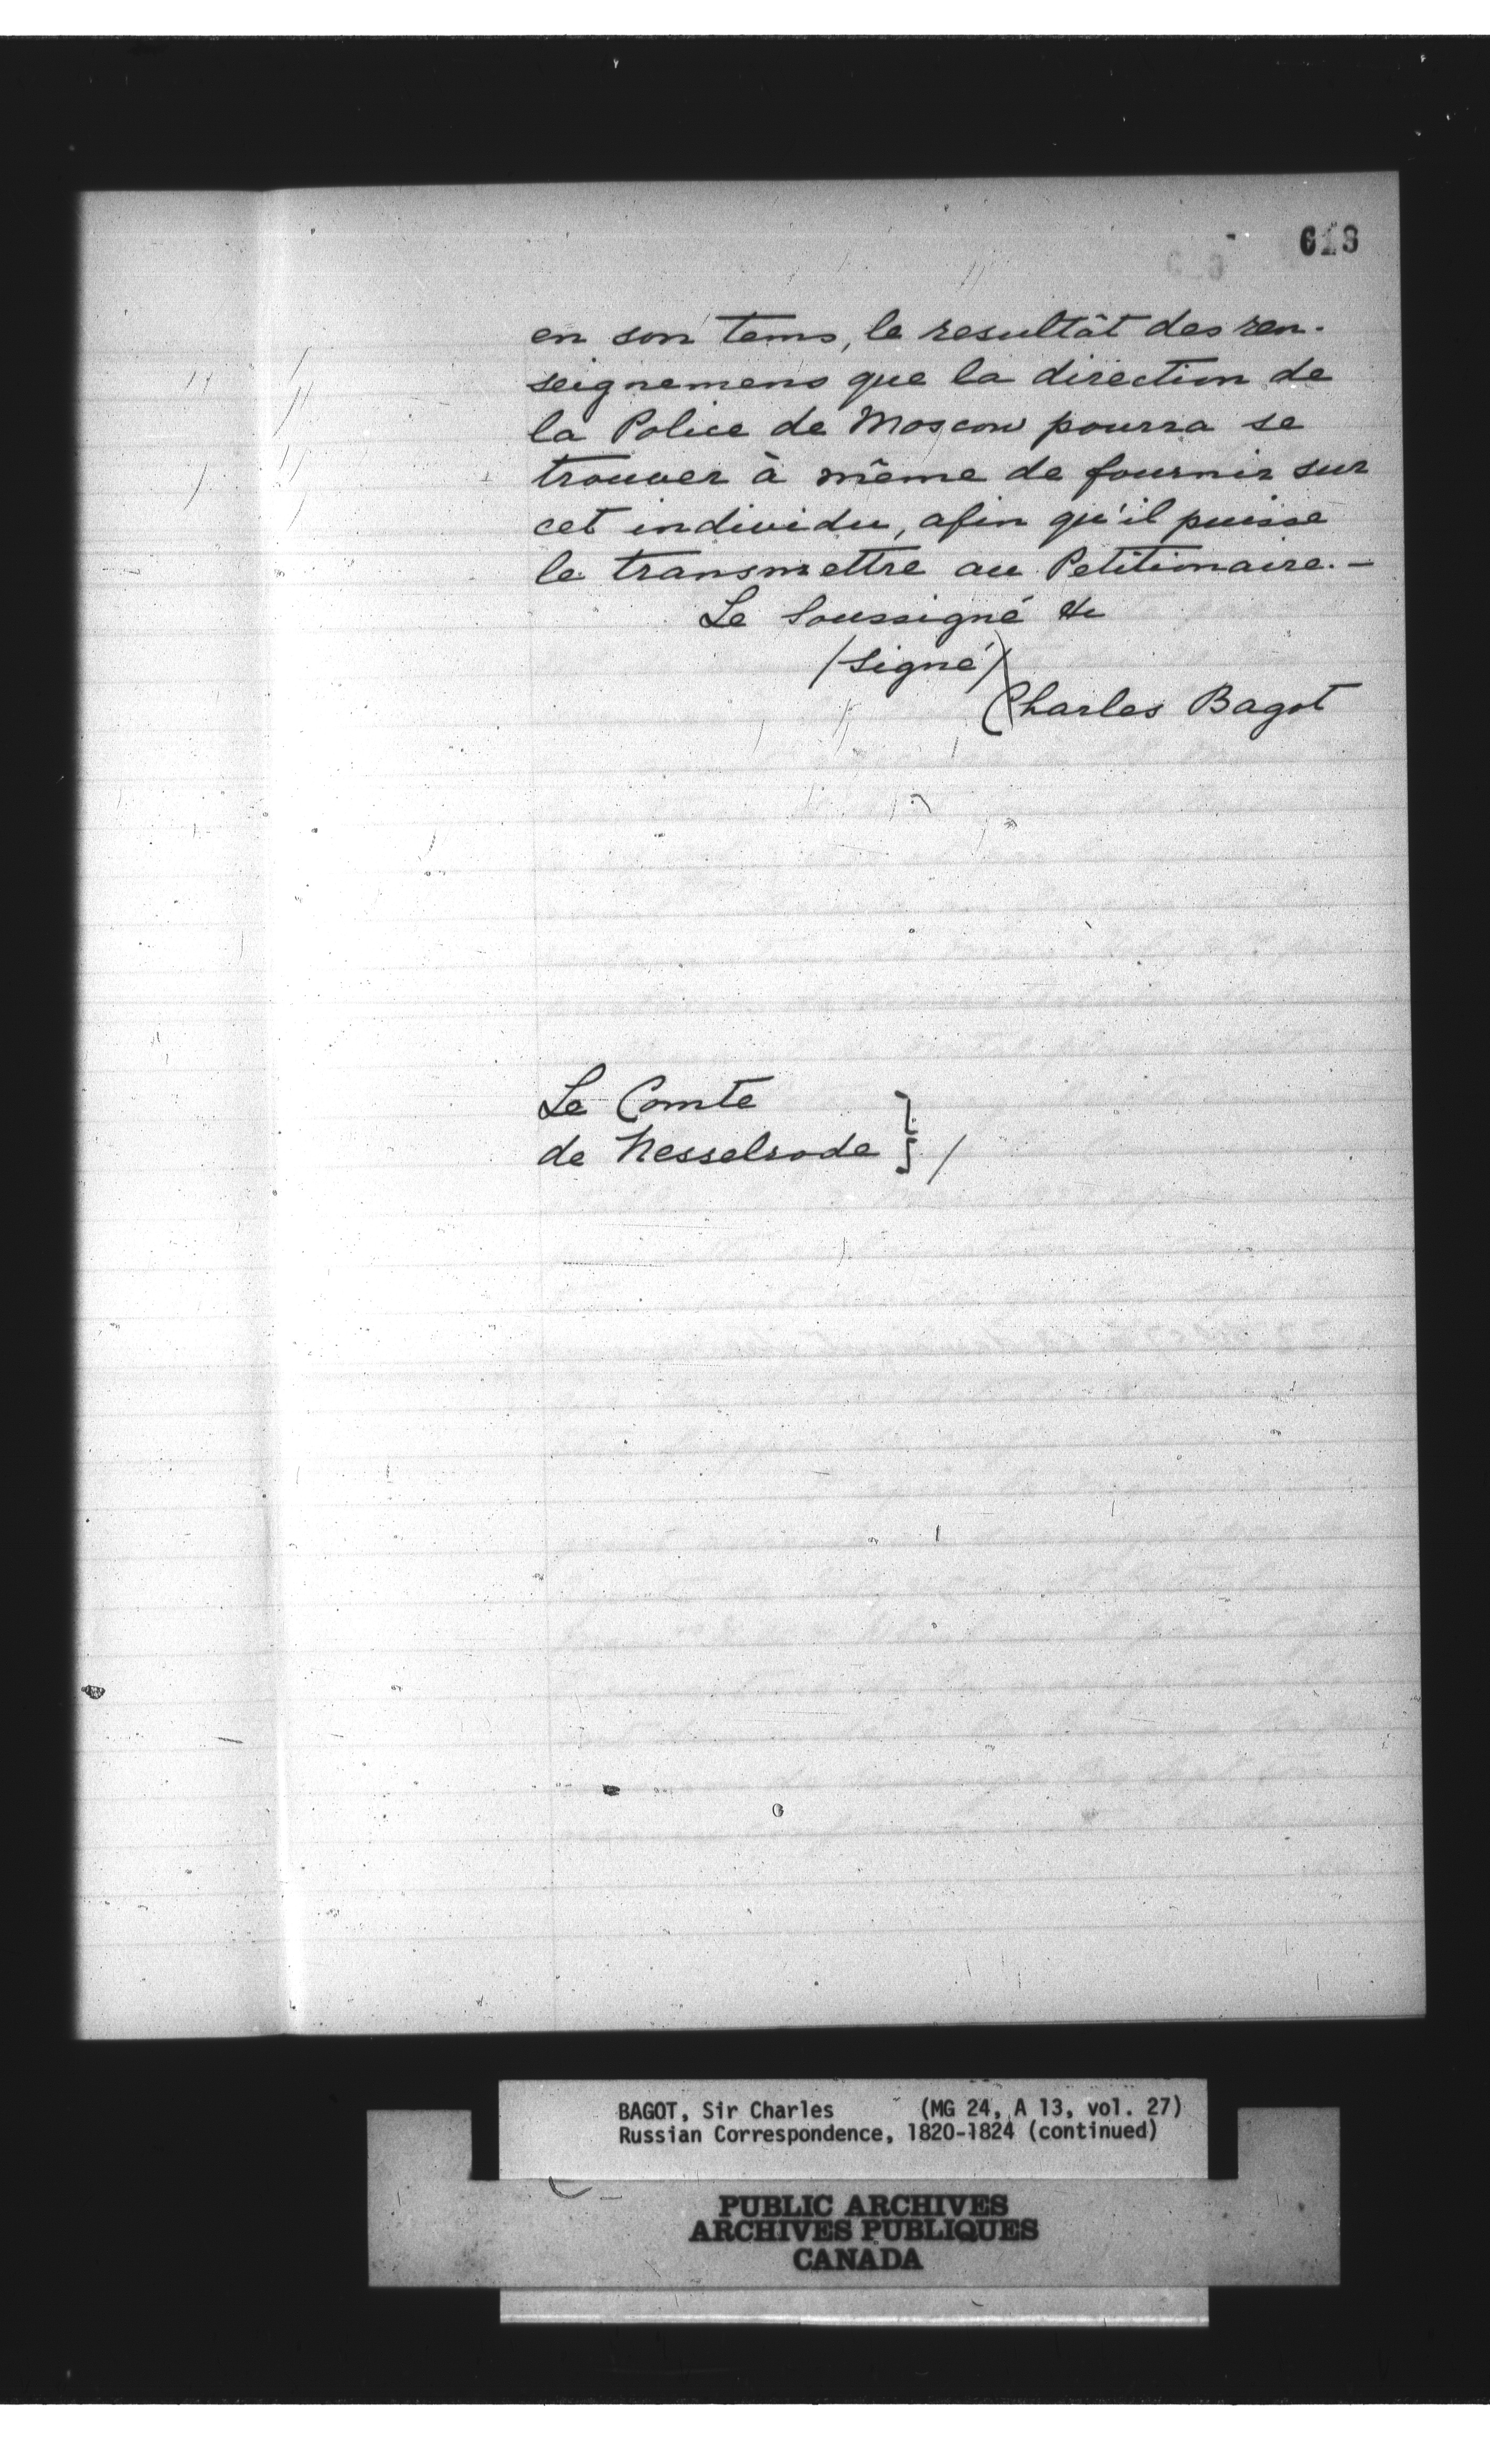 618
en son tems, le resultât des ren-
seignemens que la direction de
la Police de Moscow pourra se
trouver à même de fournir sur
cet individu, afin qu'il puisse
le transmettre au Petitionaire. —
Le Soussigné &c
/signé/
Charles Bagot
Le Comte
de Nesselrode } /
BAGOT, Sir Charles (MG 24, A 13, vol. 27)
Russian Correspondence, 1820-1824 (continued)
PUBLIC ARCHIVES
ARCHIVES PUBLIQUES
CANADA